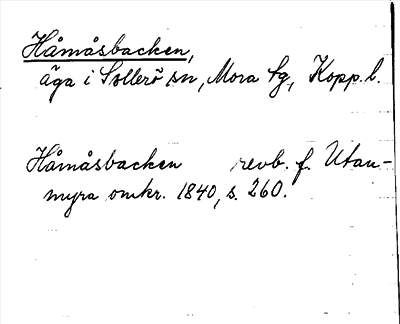 Håmåsbacken,
äga i Sollerö sn, Mora tg, Kopp. l.
Håmåsbacken revb. f. Utan-
myra omkr. 1840, s. 260.